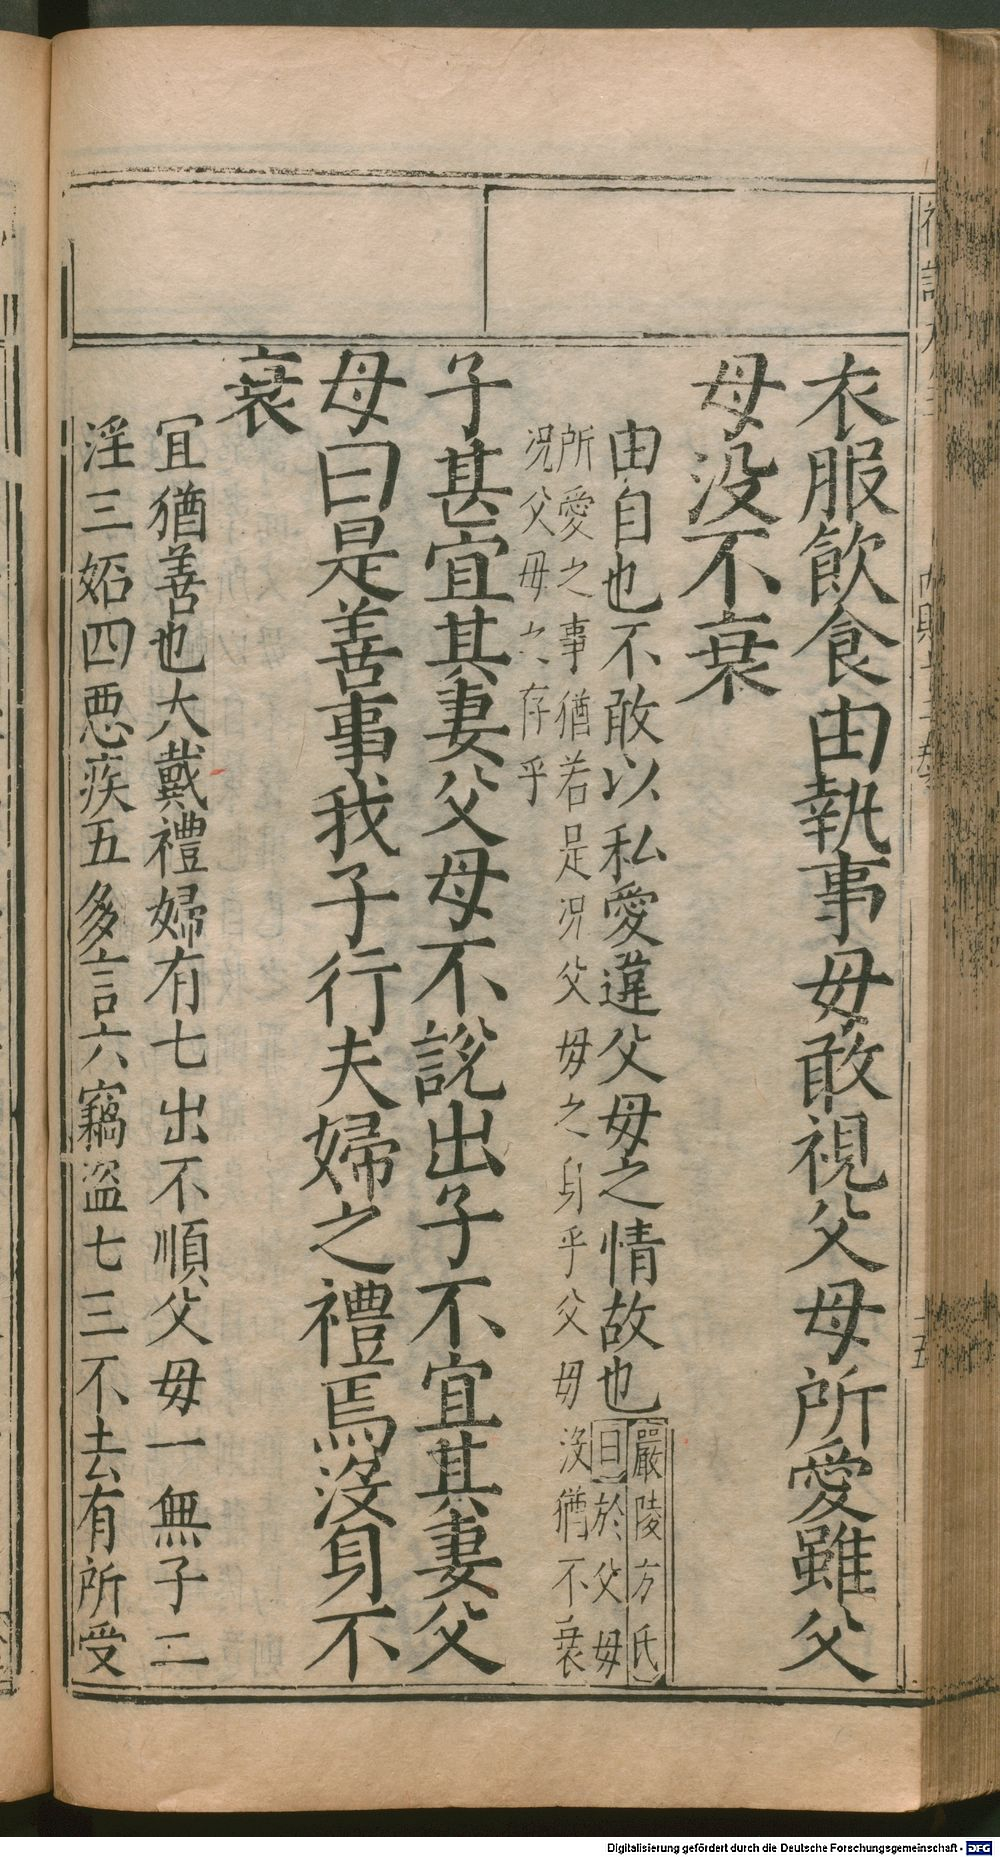 衣服飲食由執事毋敢視父母所愛雖父
母没不衰
由自也不敢以私愛違父母之情故也嚴陵方氏
曰於父母
所愛之事猶若是況父母之身乎父母没猶不衰
況父母之存乎
子甚宜其妻父母不說出子不宜其妻父
母曰是善事我子行夫婦之禮焉没身不
衰
宜猶善也大戴禮婦有七出不順父母一無子二
淫三妬四惡疾五多言六竊盗七三不去有所受
Digitalisierung gefördert durch die Deutsche Forschungsgemeinschaft - DFG